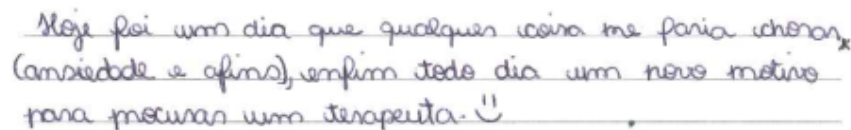 Hoje foi um dia que qualquer coisa me faria chorar,
(ansiedade e afins), enfim todo dia um novo motivo
para procurar um terapeuta. ü